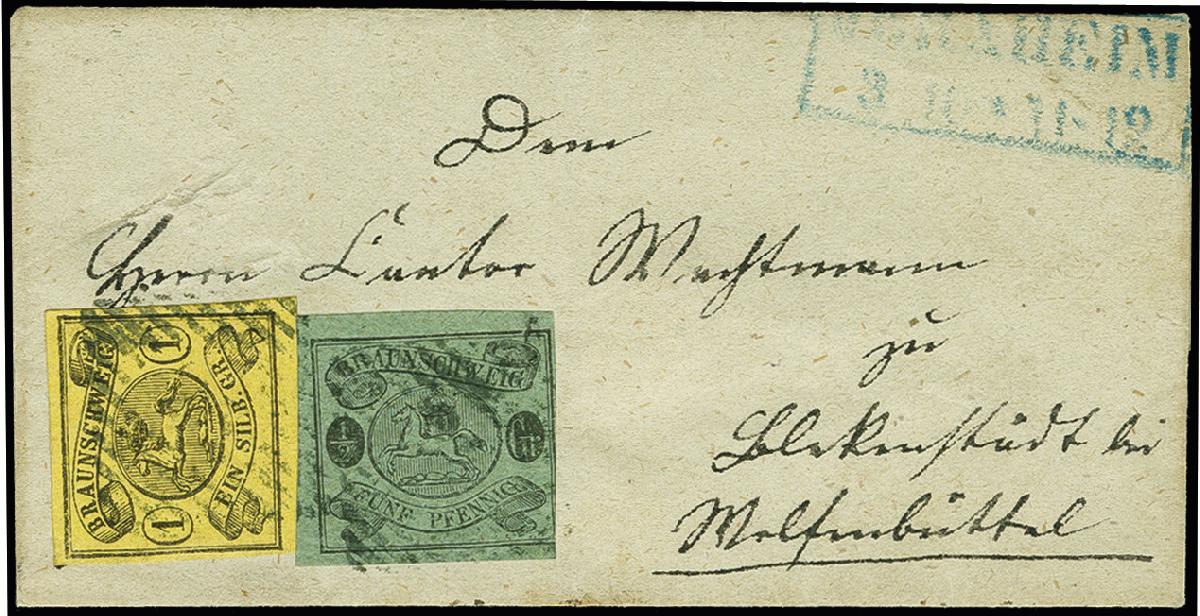 Dem
Herrn Cantor Wachtmann
zu
Blekenstädt bei
Wolfenbüttel
BRAUNSCHWEIG
1
1
EIN SILB. GR.
BRAUNSCHWEIG
1/2
FÜNF PFENNIG